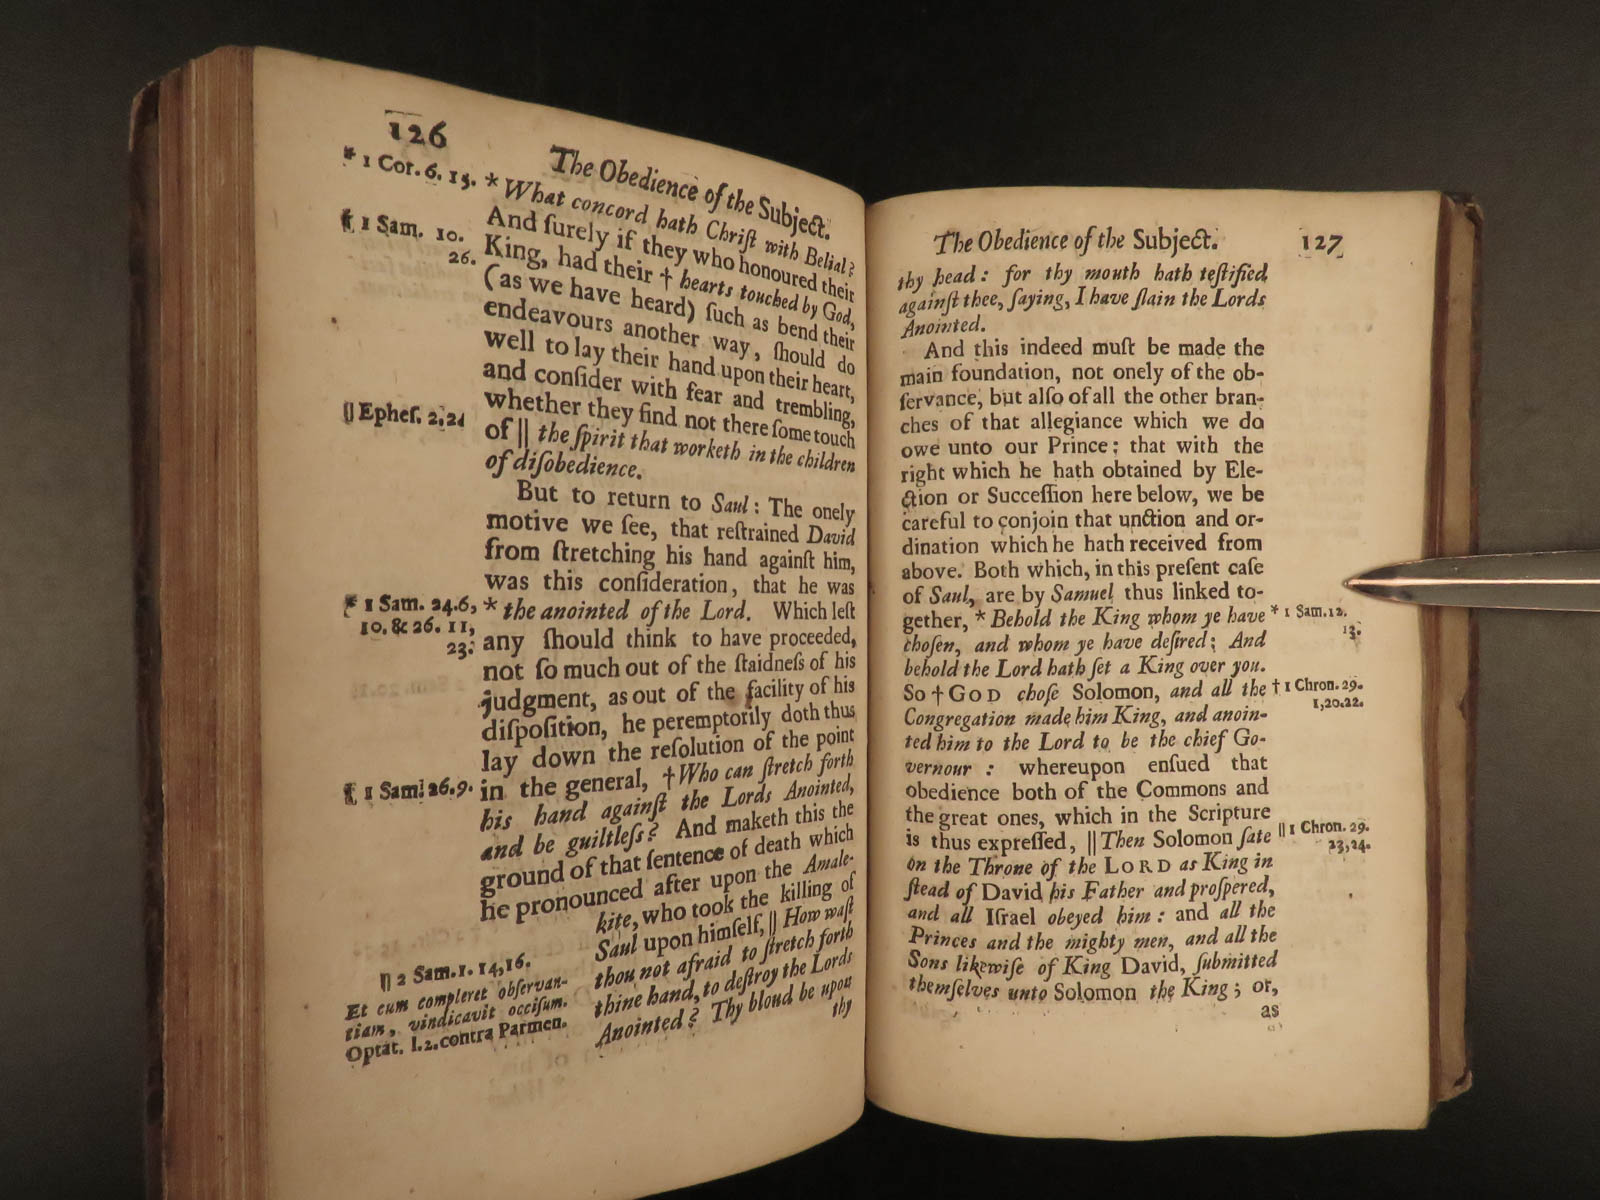 126
The Obedience of the Subject.
* 1 Cor. 6. 15.
* What concord hath Chriſt with Belial?
And ſurely if they who honoured their
† 1 Sam. 10.
26.
King, had their † hearts touched by God,
(as we have heard) ſuch as bend their
endeavours another way, ſhould do
well to lay their hand upon their heart,
and conſider with fear and trembling,
whether they find not there ſome touch
|| Epheſ. 2.2.
of || the ſpirit that worketh in the children
of diſobedience.
But to return to Saul: The onely
motive we ſee, that reſtrained David
from ſtretching his hand againſt him,
was this conſideration, that he was
* 1 Sam. 24.6,
10. & 26. 11,
23.
* the anointed of the Lord. Which leſt
any ſhould think to have proceeded,
not ſo much out of the ſtaidneſs of his
judgment, as out of the facility of his
diſpoſition, he peremptorily doth thus
lay down the reſolution of the point
† 1 Sam. 26.9.
in the general, † Who can ſtretch forth
his hand againſt the Lords Anointed,
and be guiltleſs? And maketh this the
ground of that ſentence of death which
he pronounced after upon the Amale-
kite, who took the killing of
Saul upon himſelf, || How waſt
thou not afraid to ſtretch forth
thine hand, to deſtroy the Lords
Anointed? Thy bloud be upon
thy
|| 2 Sam. 1. 14,16.
Et cum compleret obſervan-
tiam, vindicavit occiſum.
Optat. l.2. contra Parmen.
The Obedience of the Subject. 127
thy head: for thy mouth hath teſtified
againſt thee, ſaying, I have ſlain the Lords
Anointed.
And this indeed muſt be made the
main foundation, not onely of the ob-
ſervance, but alſo of all the other bran-
ches of that allegiance which we do
owe unto our Prince; that with the
right which he hath obtained by Ele-
ction or Succeſſion here below, we be
careful to conjoin that unction and or-
dination which he hath received from
above. Both which, in this preſent caſe
of Saul, are by Samuel thus linked to-
gether, * Behold the King whom ye have
* 1 Sam. 12.
13.
choſen, and whom ye have deſired; And
behold the Lord hath ſet a King over you.
So † GOD choſe Solomon, and all the
† 1 Chron. 29.
1,20.22.
Congregation made him King, and anoin-
ted him to the Lord to be the chief Go-
vernour: whereupon enſued that
obedience both of the Commons and
the great ones, which in the Scripture
is thus expreſſed, || Then Solomon ſate
|| 1 Chron. 29.
23,24.
on the Throne of the LORD as King in
ſtead of David his Father and proſpered,
and all Iſrael obeyed him: and all the
Princes and the mighty men, and all the
Sons likewiſe of King David, ſubmitted
themſelves unto Solomon the King; or,
as